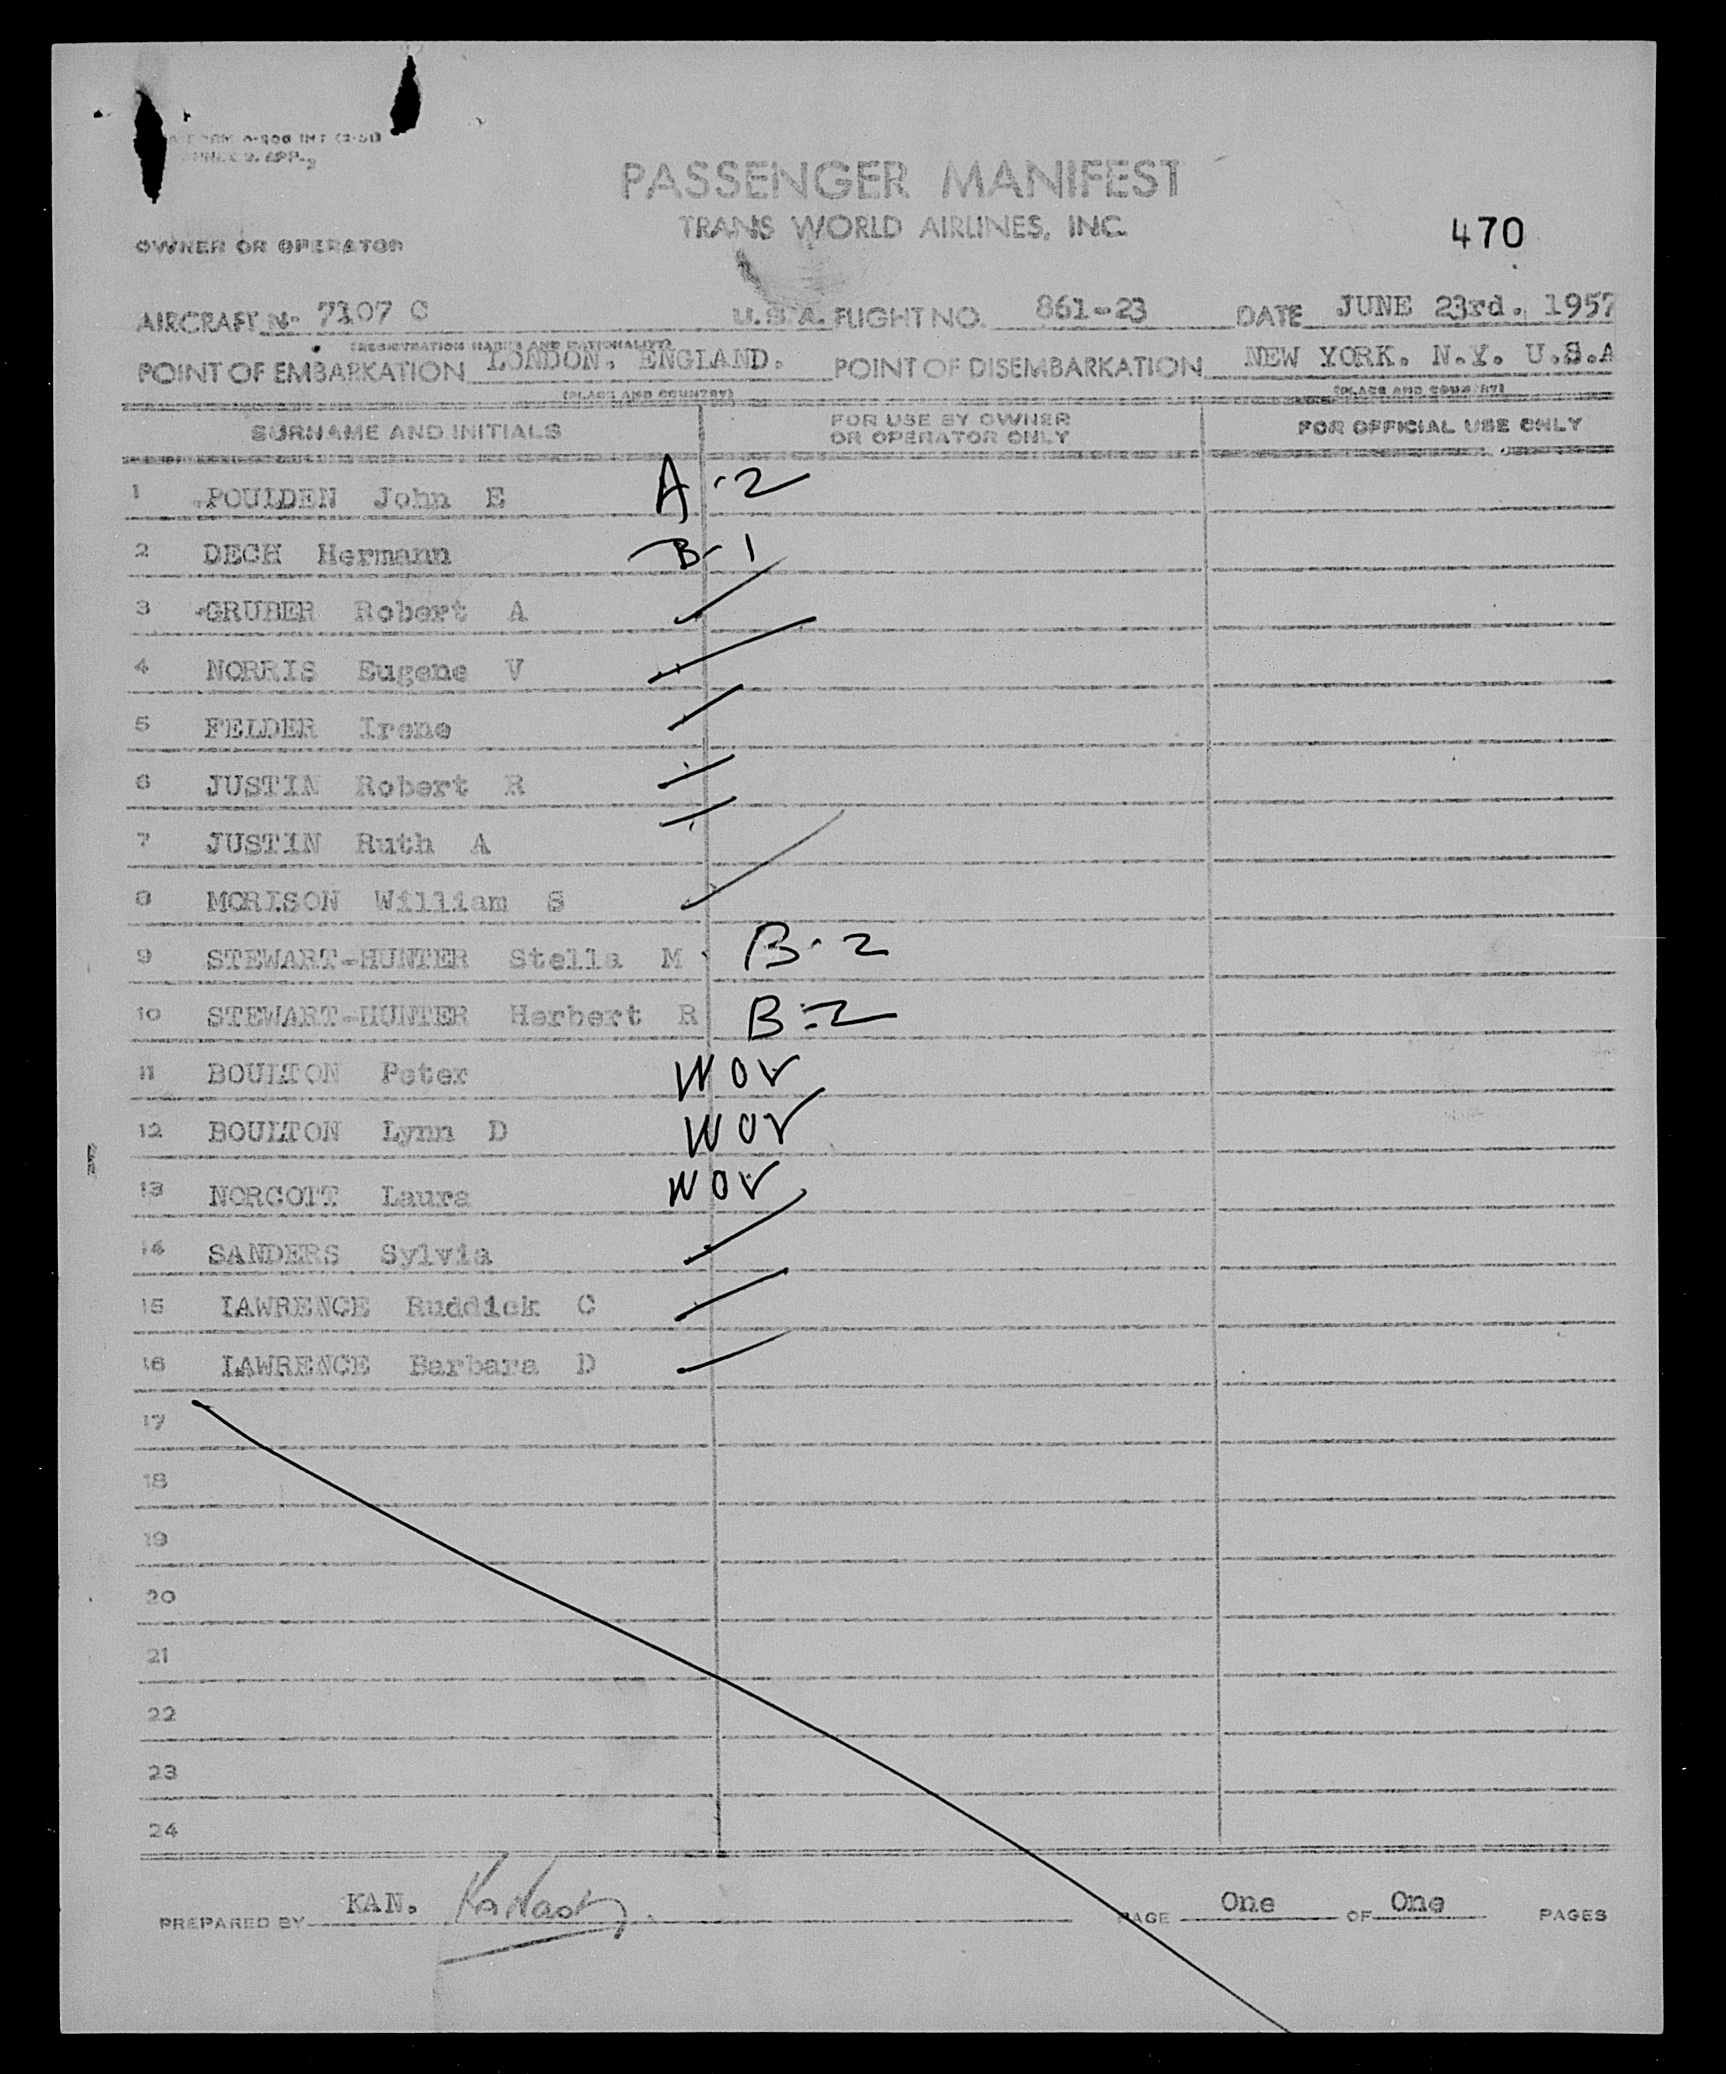 PASSENGER MANIFEST
TRANS WORLD AIRLINES, INC.
470
OWNER OR OPERATOR
AIRCRAFT No 7107 C U.S.A. FLIGHT NO. 861-23 DATE JUNE 23rd. 1957
(REGISTRATION MARKS AND NATIONALITY)
POINT OF EMBARKATION LONDON. ENGLAND. POINT OF DISEMBARKATION NEW YORK. N.Y. U.S.A
(PLACE AND COUNTRY) (PLACE AND COUNTRY)
SURNAME AND INITIALS FOR USE BY OWNER OR OPERATOR ONLY FOR OFFICIAL USE ONLY
1 POULDEN John E A-2
2 DECH Hermann B-1
3 GRUBER Robert A
4 NORRIS Eugene V
5 FELDER Irene
6 JUSTIN Robert R
7 JUSTIN Ruth A
8 MORISON William S
9 STEWART-HUNTER Stella M B-2
10 STEWART-HUNTER Herbert R B-2
11 BOULTON Peter WOV
12 BOULTON Lynn D WOV
13 NORCOTT Laura WOV
14 SANDERS Sylvia
15 LAWRENCE Ruddick C
16 LAWRENCE Barbara D
17
18
19
20
21
22
23
24
PREPARED BY KAN. PAGE One OF One PAGES